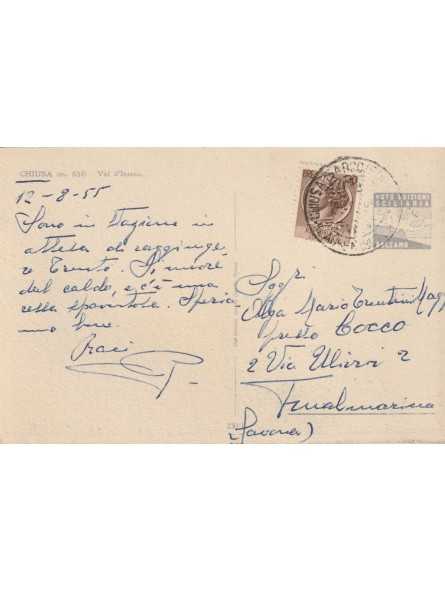 CHIUSA m. 516 Val d'Isarco
12-8-55
Sono in stazione in
attesa di raggiunge-
re Trento. Si muore
del caldo, e c'è una
ressa spaventosa. Speria-
mo bene.
Baci
FOTO EDIZIONI
SCILIARIA
BOLZANO
Sigg.
Olga Mario Trentini
presso COCCO
2 Via Ulivi 2
Finalmarina
(Savona)